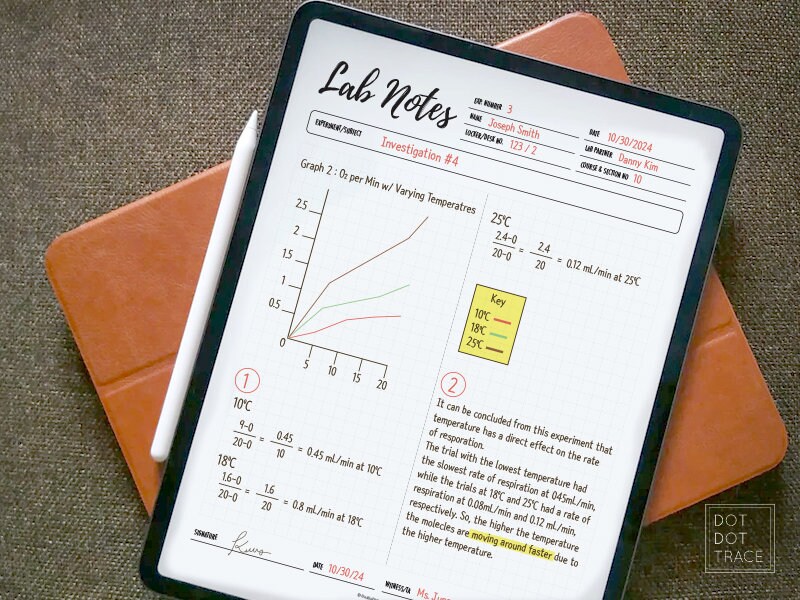 Lab Notes
EXP. NUMBER 3
NAME Joseph Smith
DATE 10/30/2024
LOCKER/DESK NO. 123 / 2
LAB PARTNER Danny Kim
COURSE & SECTION NO 10
EXPERIMENT/SUBJECT
Investigation #4
Graph 2 : O₂ per Min w/ Varying Temperatres
2.5
2
1.5
1
0.5
0
5
10
15
20
1
10℃
9-0
20-0
=
0.45
10
= 0.45 mL/min at 10℃
18℃
1.6-0
20-0
=
1.6
20
= 0.8 mL/min at 18℃
25℃
2.4-0
20-0
=
2.4
20
= 0.12 mL/min at 25℃
Key
10℃
18℃
25℃
2
It can be concluded from this experiment that
temperature has a direct effect on the rate
of resporation.
The trial with the lowest temperature had
the slowest rate of respiration at 045mL/min,
while the trials at 18℃ and 25℃ had a rate of
respiration at 0.08mL/min and 0.12 mL/min,
respectively. So, the higher the temperature
the molecles are moving around faster due to
the higher temperature.
SIGNATURE
DATE 10/30/24
WITNESS/TA Ms.
DOT
DOT
TRACE